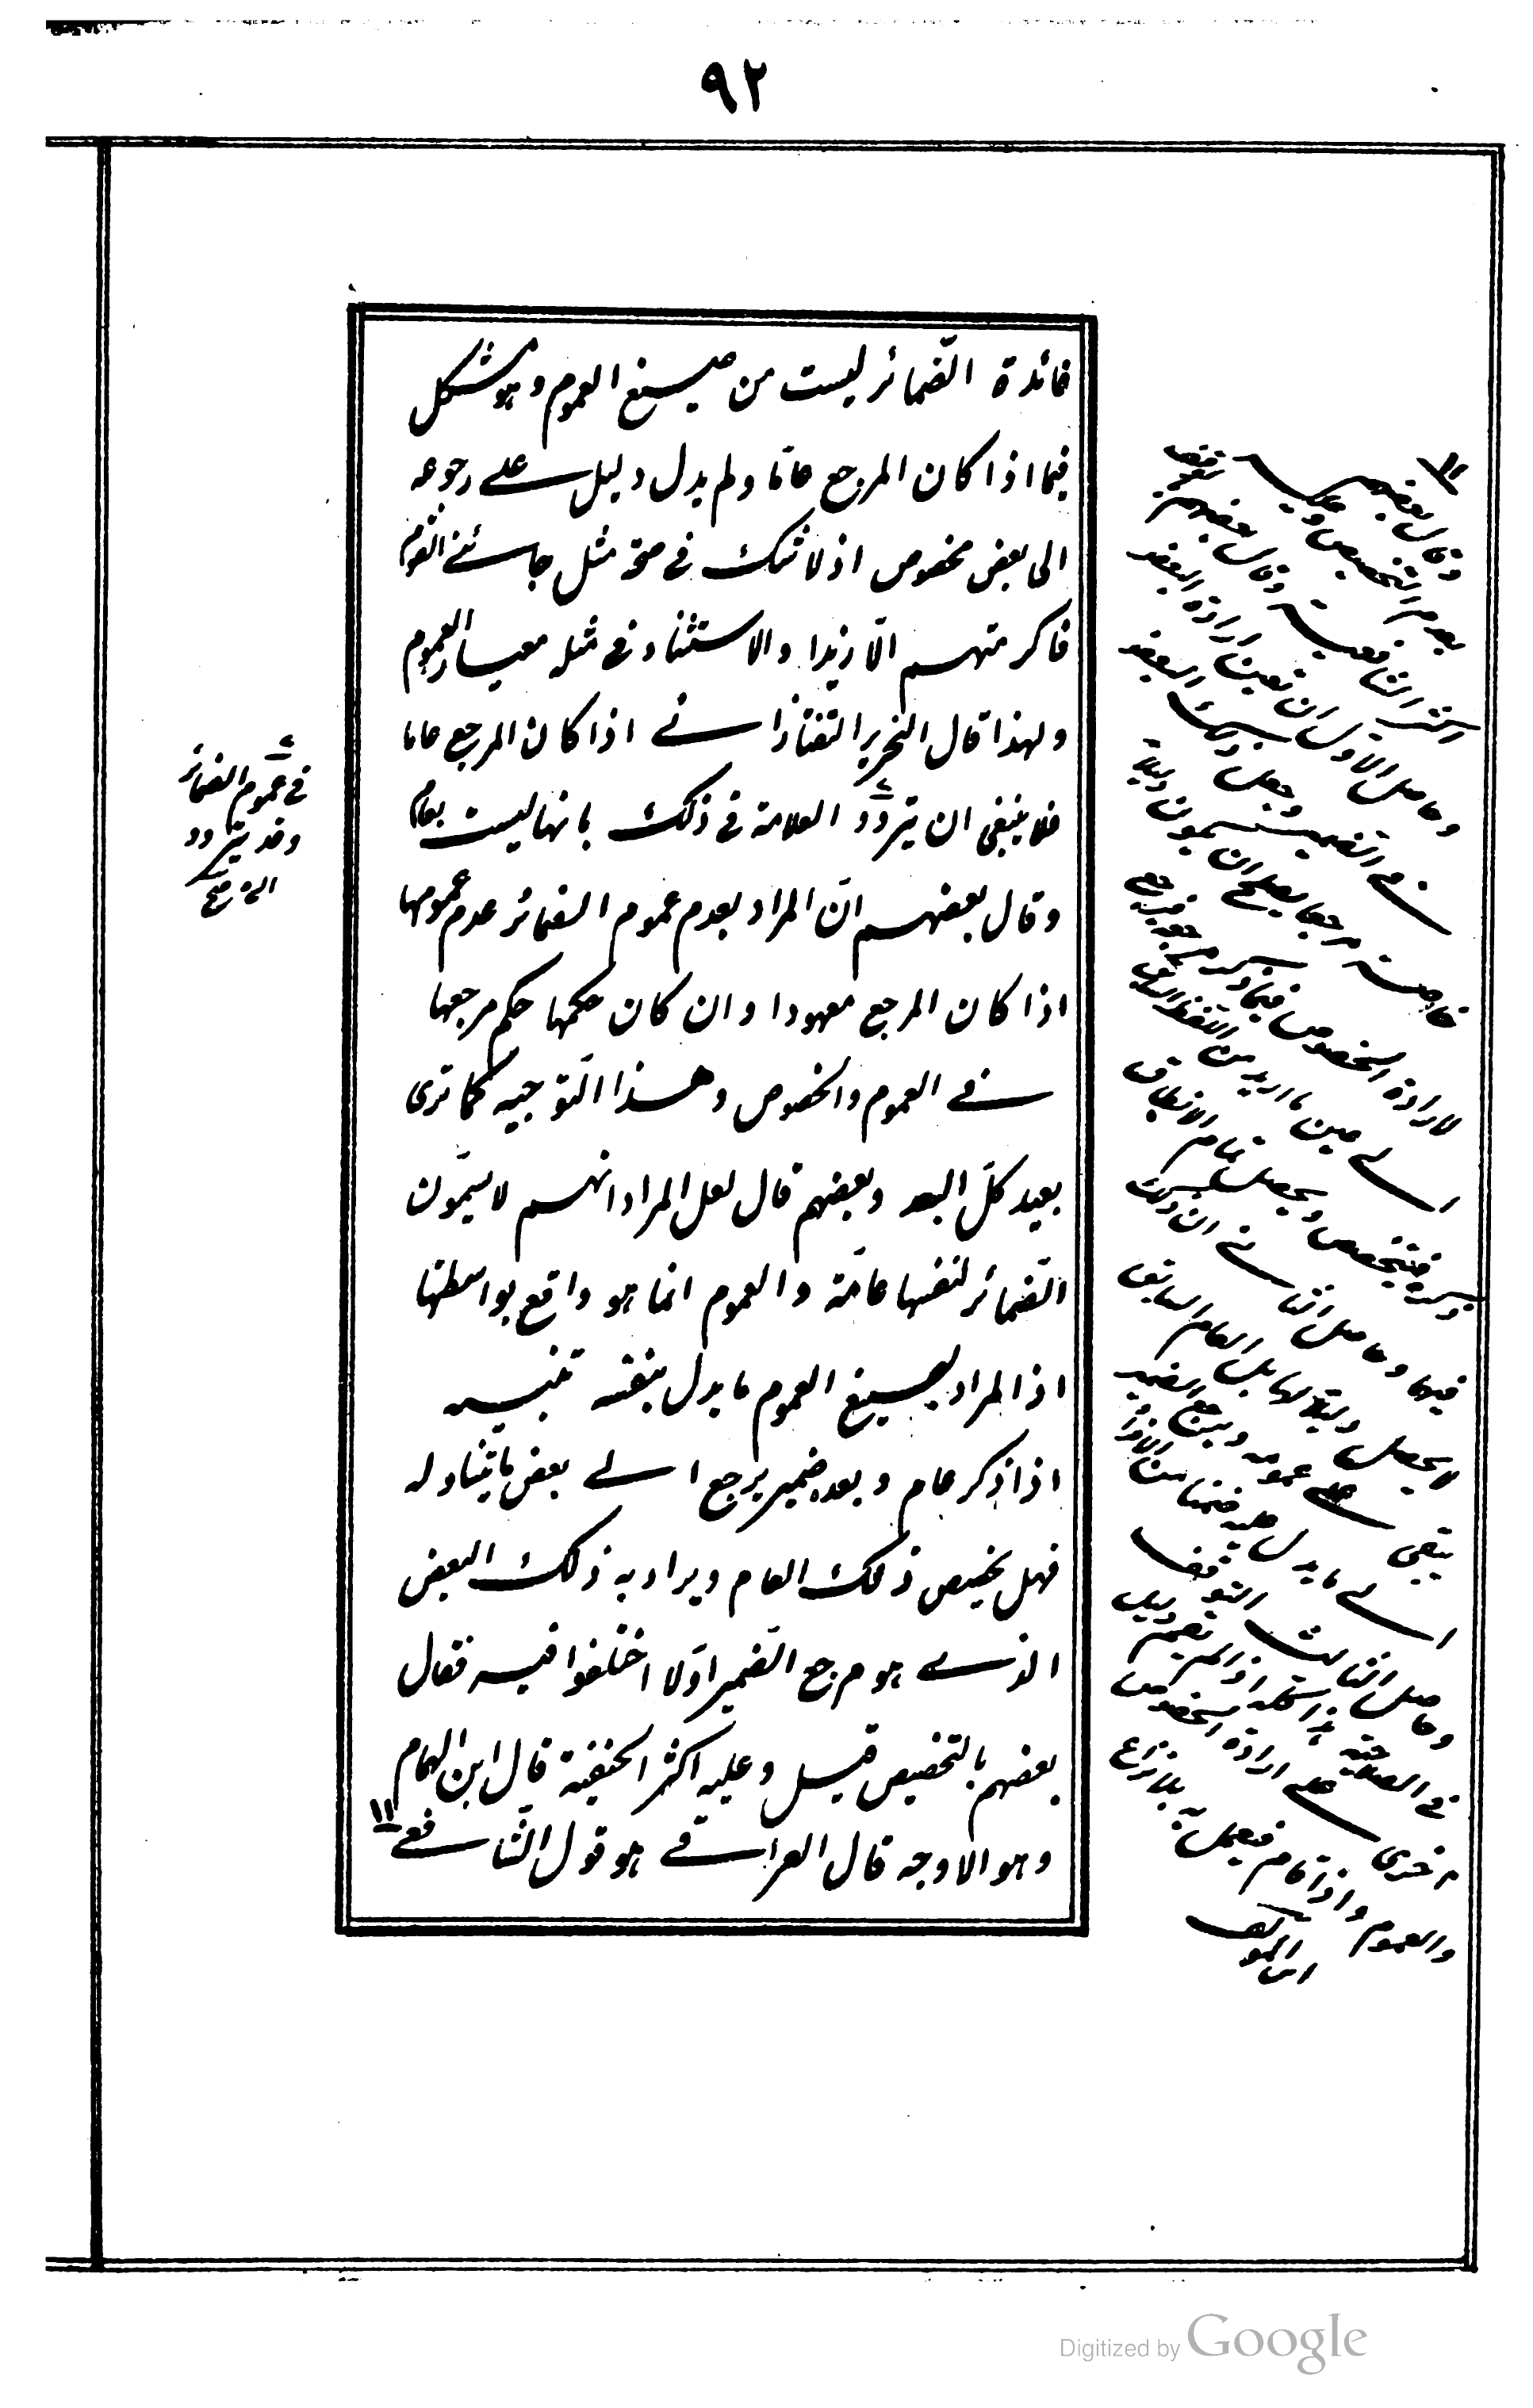 ٩٢
فائدة الضّمائر ليست من صيغ العموم وهو مشكل
فيما اذا كان المرجع عامّا ولم يدل دليل على رجوعه
الى بعض مخصوص اذ لا شك فى صحة مثل جائنى القوم
فاكرمتهم الّا زيدا والاستثناء فى مثله معيار العموم
ولهذا قال النحرير التفتازانى اذا كان المرجع عاما
فلا ينبغى ان يتردّد العلامة فى ذلك بانها ليست بعام
وقال بعضهم انّ المراد بعدم عموم الضمائر عدم عمومها
اذا كان المرجع معهودا وان كان حكمها حكم مرجعها
فى العموم والخصوص وهذا التّوجيه كما ترى
بعيد كلّ البعد وبعضهم قال لعل المراد انهم لا يسمّون
الضّمائر لنفسها عامّة والعموم انما هو واقع بواسطتها
اذ المراد بصيغ العموم ما يدل بنفسه تنبيه
اذا ذكر عام وبعده ضمير يرجع الى بعض ما يتناوله
فهل يخصص ذلك العام ويراد به ذلك البعض
الذى هو مرجع الضّمير اوّلا اختلفوا فيه فقال
بعضهم بالتخصيص قيل وعليه اكثر الحنفية قال ابن الهمام
وهو الاوجه قال العراقى هو قول الشّافعى ١١
فى عموم الضمائر
وقد يتردد
١١
وقال بعضهم
بعدم التخصيص وعليه
اكثر الشافعية وقال بعضهم
وحاصل الاول ان تعين ارادة البعض
فى الضمير وجعل ذلك البعض
خاصة مرجعا يصلح ان يكون دليلا
لارادة الخصوص فيما ذكر
الى عين ما اريد من اللفظ السابق
ويحصل تمام الانطباق
فيها وحاصل الثانى ان ذلك
لا يحصل دليلا لها بل العام السابق
يبقى على عمومه ويرجع الضمير
الى ما يدل عليه ضمنا من الافراد
وحاصل الثالث التوقف
فى الصلاحية
اخرى على ارادة الخصوص
والعموم واذا قام فيعمل به بلا نزاع